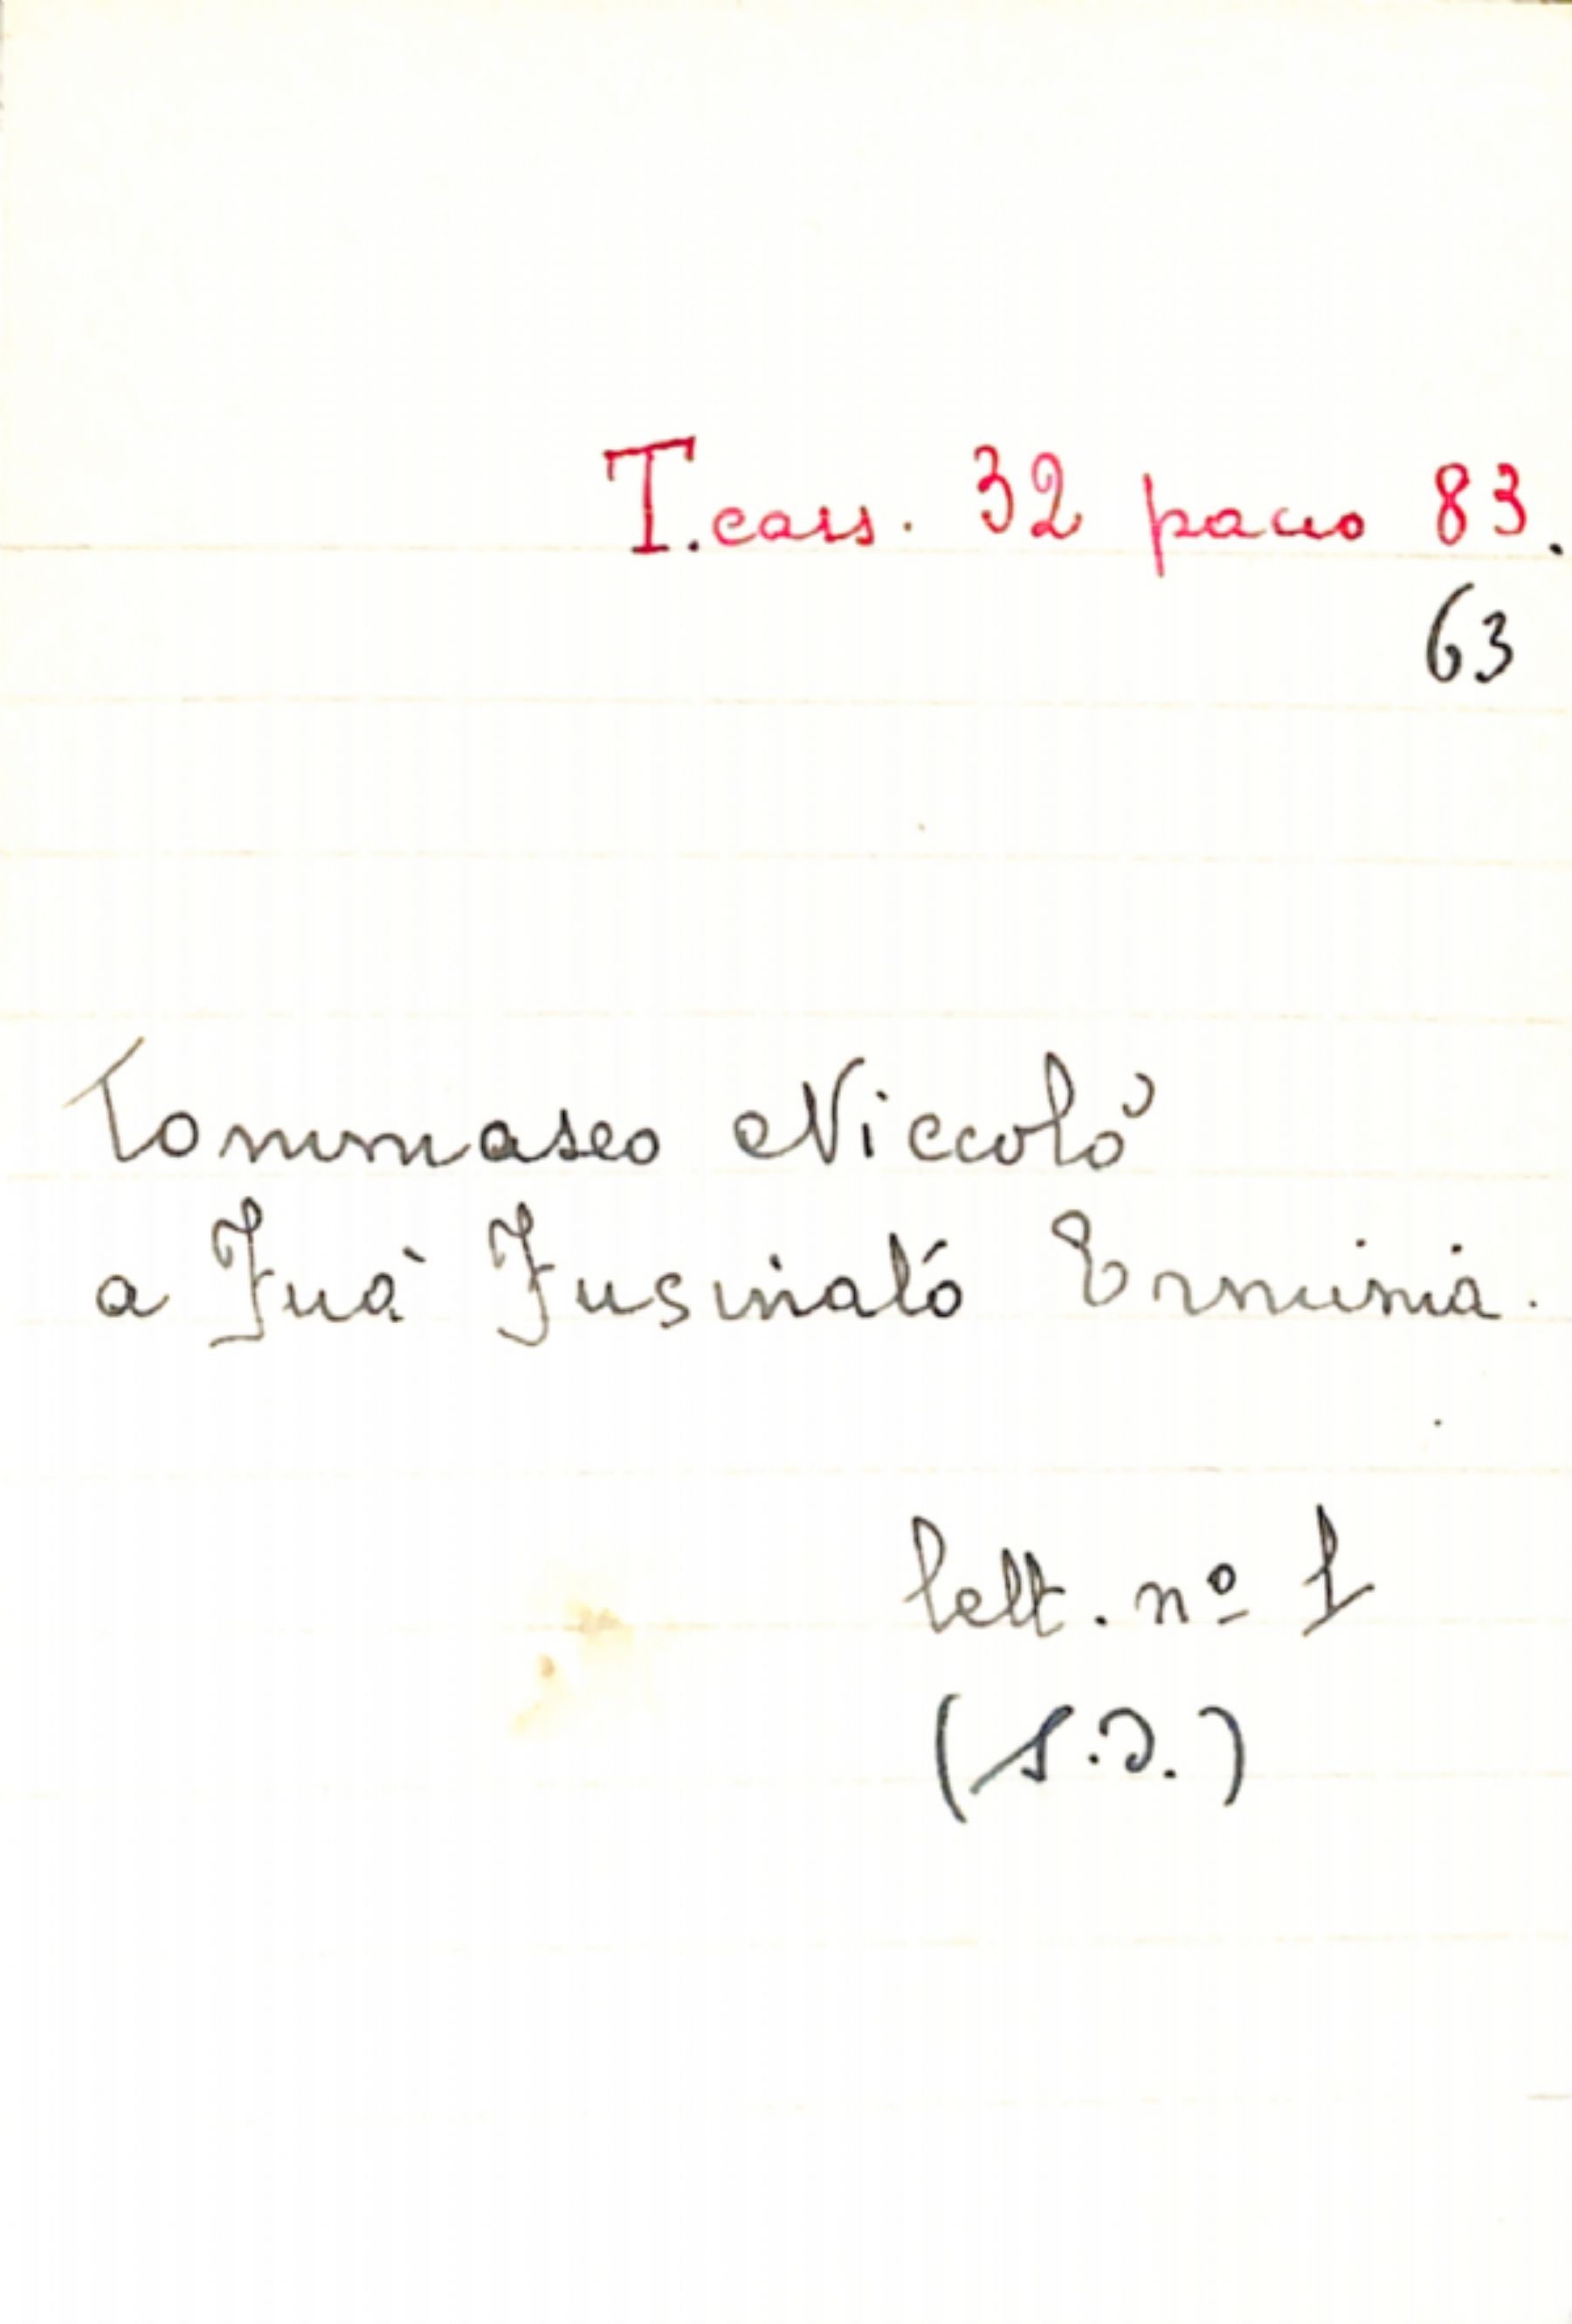 T. cass. 32 pacco 83.
63
Tommaseo Niccolò
a Fuà Fusinato Erminia.
lett. nº 1
(s.d.)